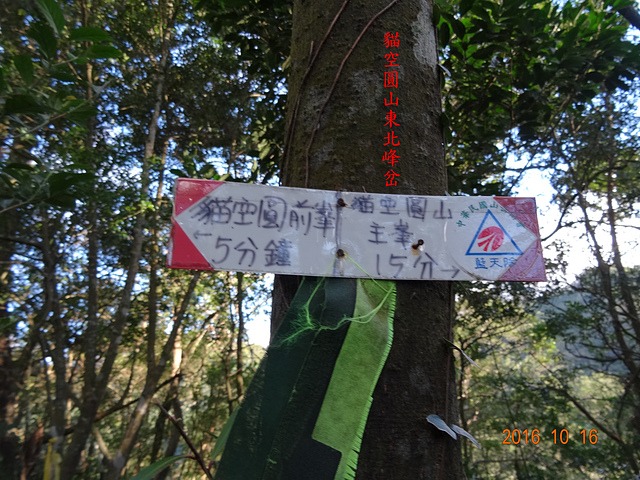 貓空圓山東北峰岔
貓空圓前峯
←5分鐘
貓空圓山
主峯
15分→
中華民國山
藍天隊
2016 10 16